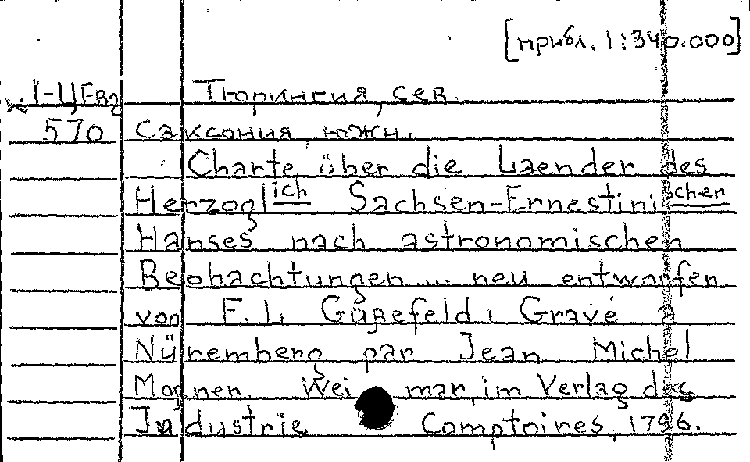 [прибл. 1:340.000]
I-ЦЕвд Тюрингия, сев.
570 Саксония, южн.
Charte über die Laender des
Herzoglich Sachsen-Ernestinischen
Hanses nach astronomischen
Beobachtungen ... neu entworfen
von F. L. Güßefeld. Gravé à
Nüremberg par Jean Michel
Mognen. Weimar, im Verlag des
Industrie Comptoires, 1796.